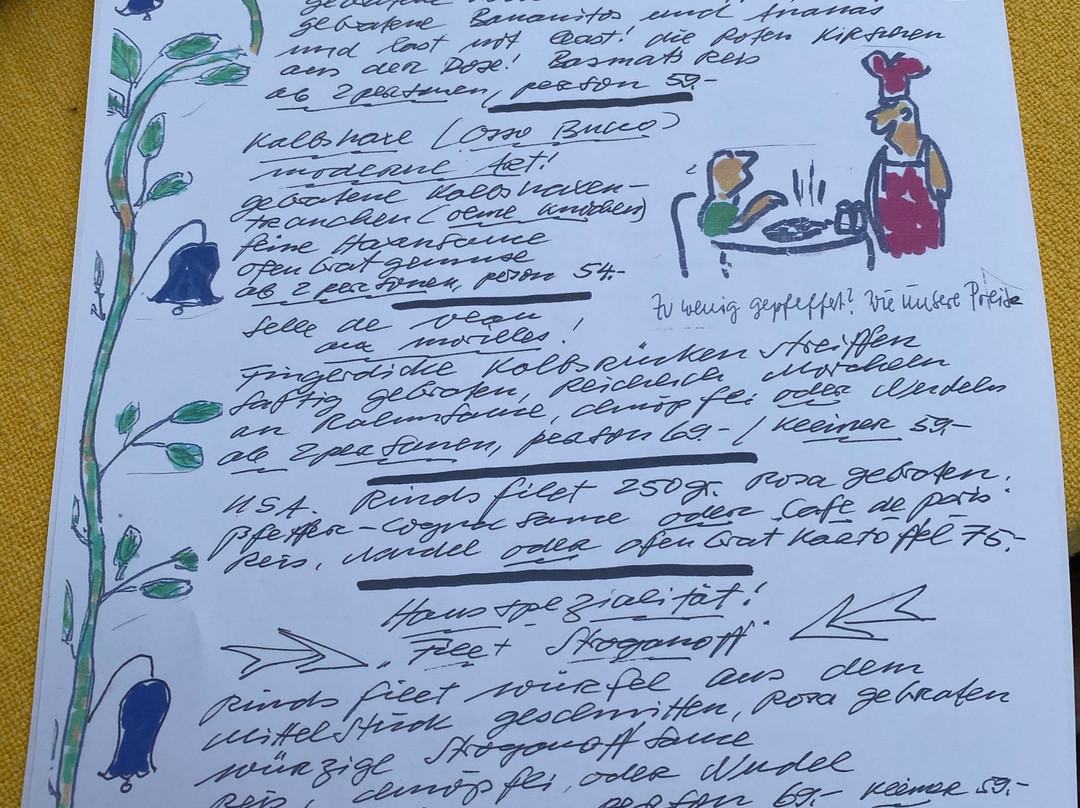 gebratene Bananitos und Ananas
und last not least! die Roten Kirschen
aus der Dose! Basmati Reis
ab 2 personen, person 59.-
Kalbshaxe (Osso Bucco)
moderne Art!
gebratene Kalbshaxen-
tranchen (ohne Knochen)
feine Haxensauce
ofen Grat gemüse
ab 2 personen, person 54.-
Zu wenig gepfeffert? Wie unsere Preise
Selle de veau
aux morilles!
Fingerdicke Kalbsrücken streiffen
saftig gebraten, Reichlich Morcheln
an Rahmsauce, chnöpfli oder Nudeln
ab 2 personen, person 69.- / kleiner 59.-
USA. Rinds filet 250gr. Rosa gebraten.
Pfeffer-Cognac Sauce oder Café de paris
Reis, Nudel oder ofen Grat Kartoffel 75.-
Hausspezialität!
"Filet Stroganoff"
Rinds filet würfel aus dem
Mittelstück geschnitten, Rosa gebraten
würzige Stroganoff Sauce
Reis, chnöpfli, oder Nudel
person 69.- kleiner 59.-